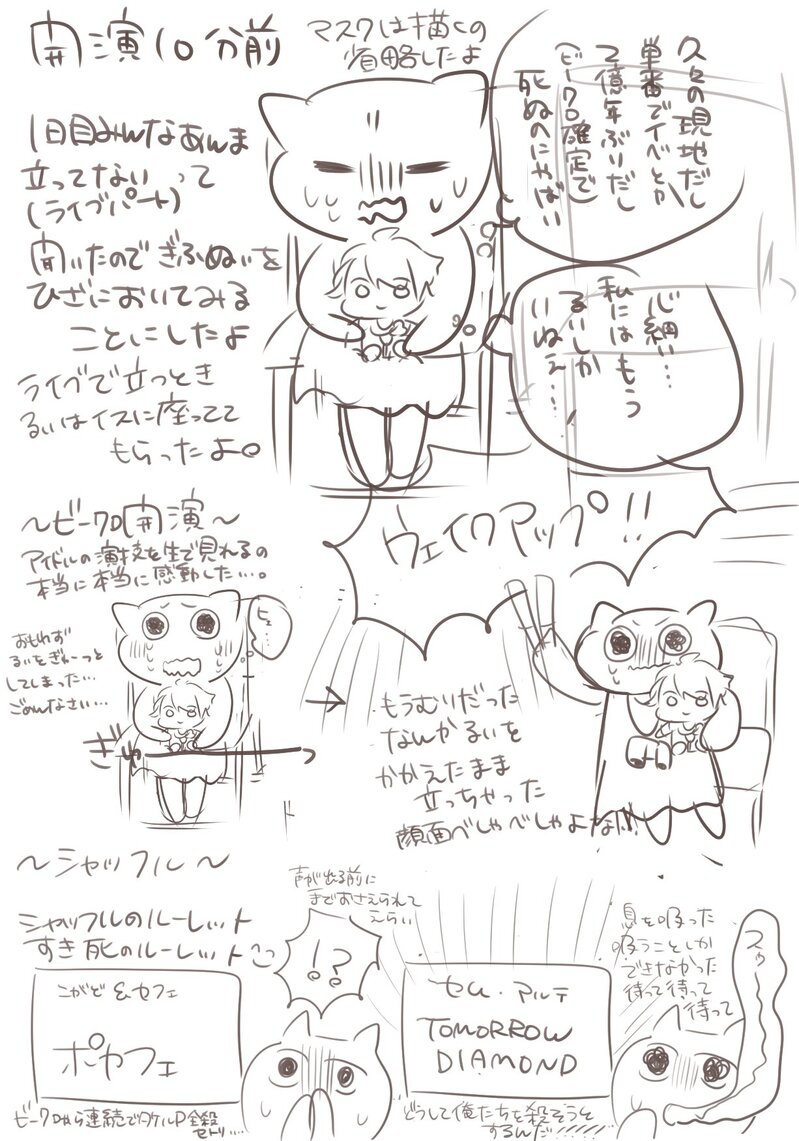 開演10分前
マスクは描くの
省略したよ
久々の現地だし
単番でイベとか
2億年ぶりだし
ビークロ確定で
死ぬほどやばい
1日目みんなあんま
立ってない って
(ライブパート)
聞いたのでぎふぬいを
ひざにおいてみる
ことにしたよ
ライブで立つとき
るいはイスに座ってて
もらったよ。
心細い…
私にはもう
るいしか
いねえ…
〜ビークロ開演〜
アイドルの演技を生で見れるの
本当に本当に感動した…。
おもわず
るいをぎゅーっと
してしまった…
ごめんなさい…
ヒェ…
ぎゅーっ
ウェイクアップ!!
もうむりだった
なんかるいを
かかえたまま
立っちゃった
顔面べしゃべしゃよな!!
〜シャッフル〜
シャッフルのルーレット
すき 死のルーレット
声が出る前に
手でおさえられて
えらい
!?
こがど&セフェ
ポヤフェ
ビークロから連続でタケルP全殺
セトリ…
セム・アルテ
TOMORROW
DIAMOND
どうして俺たちを殺そうと
するんだ
息を吸った
吸うことしか
できなかった
待って待って
待って
スゥー